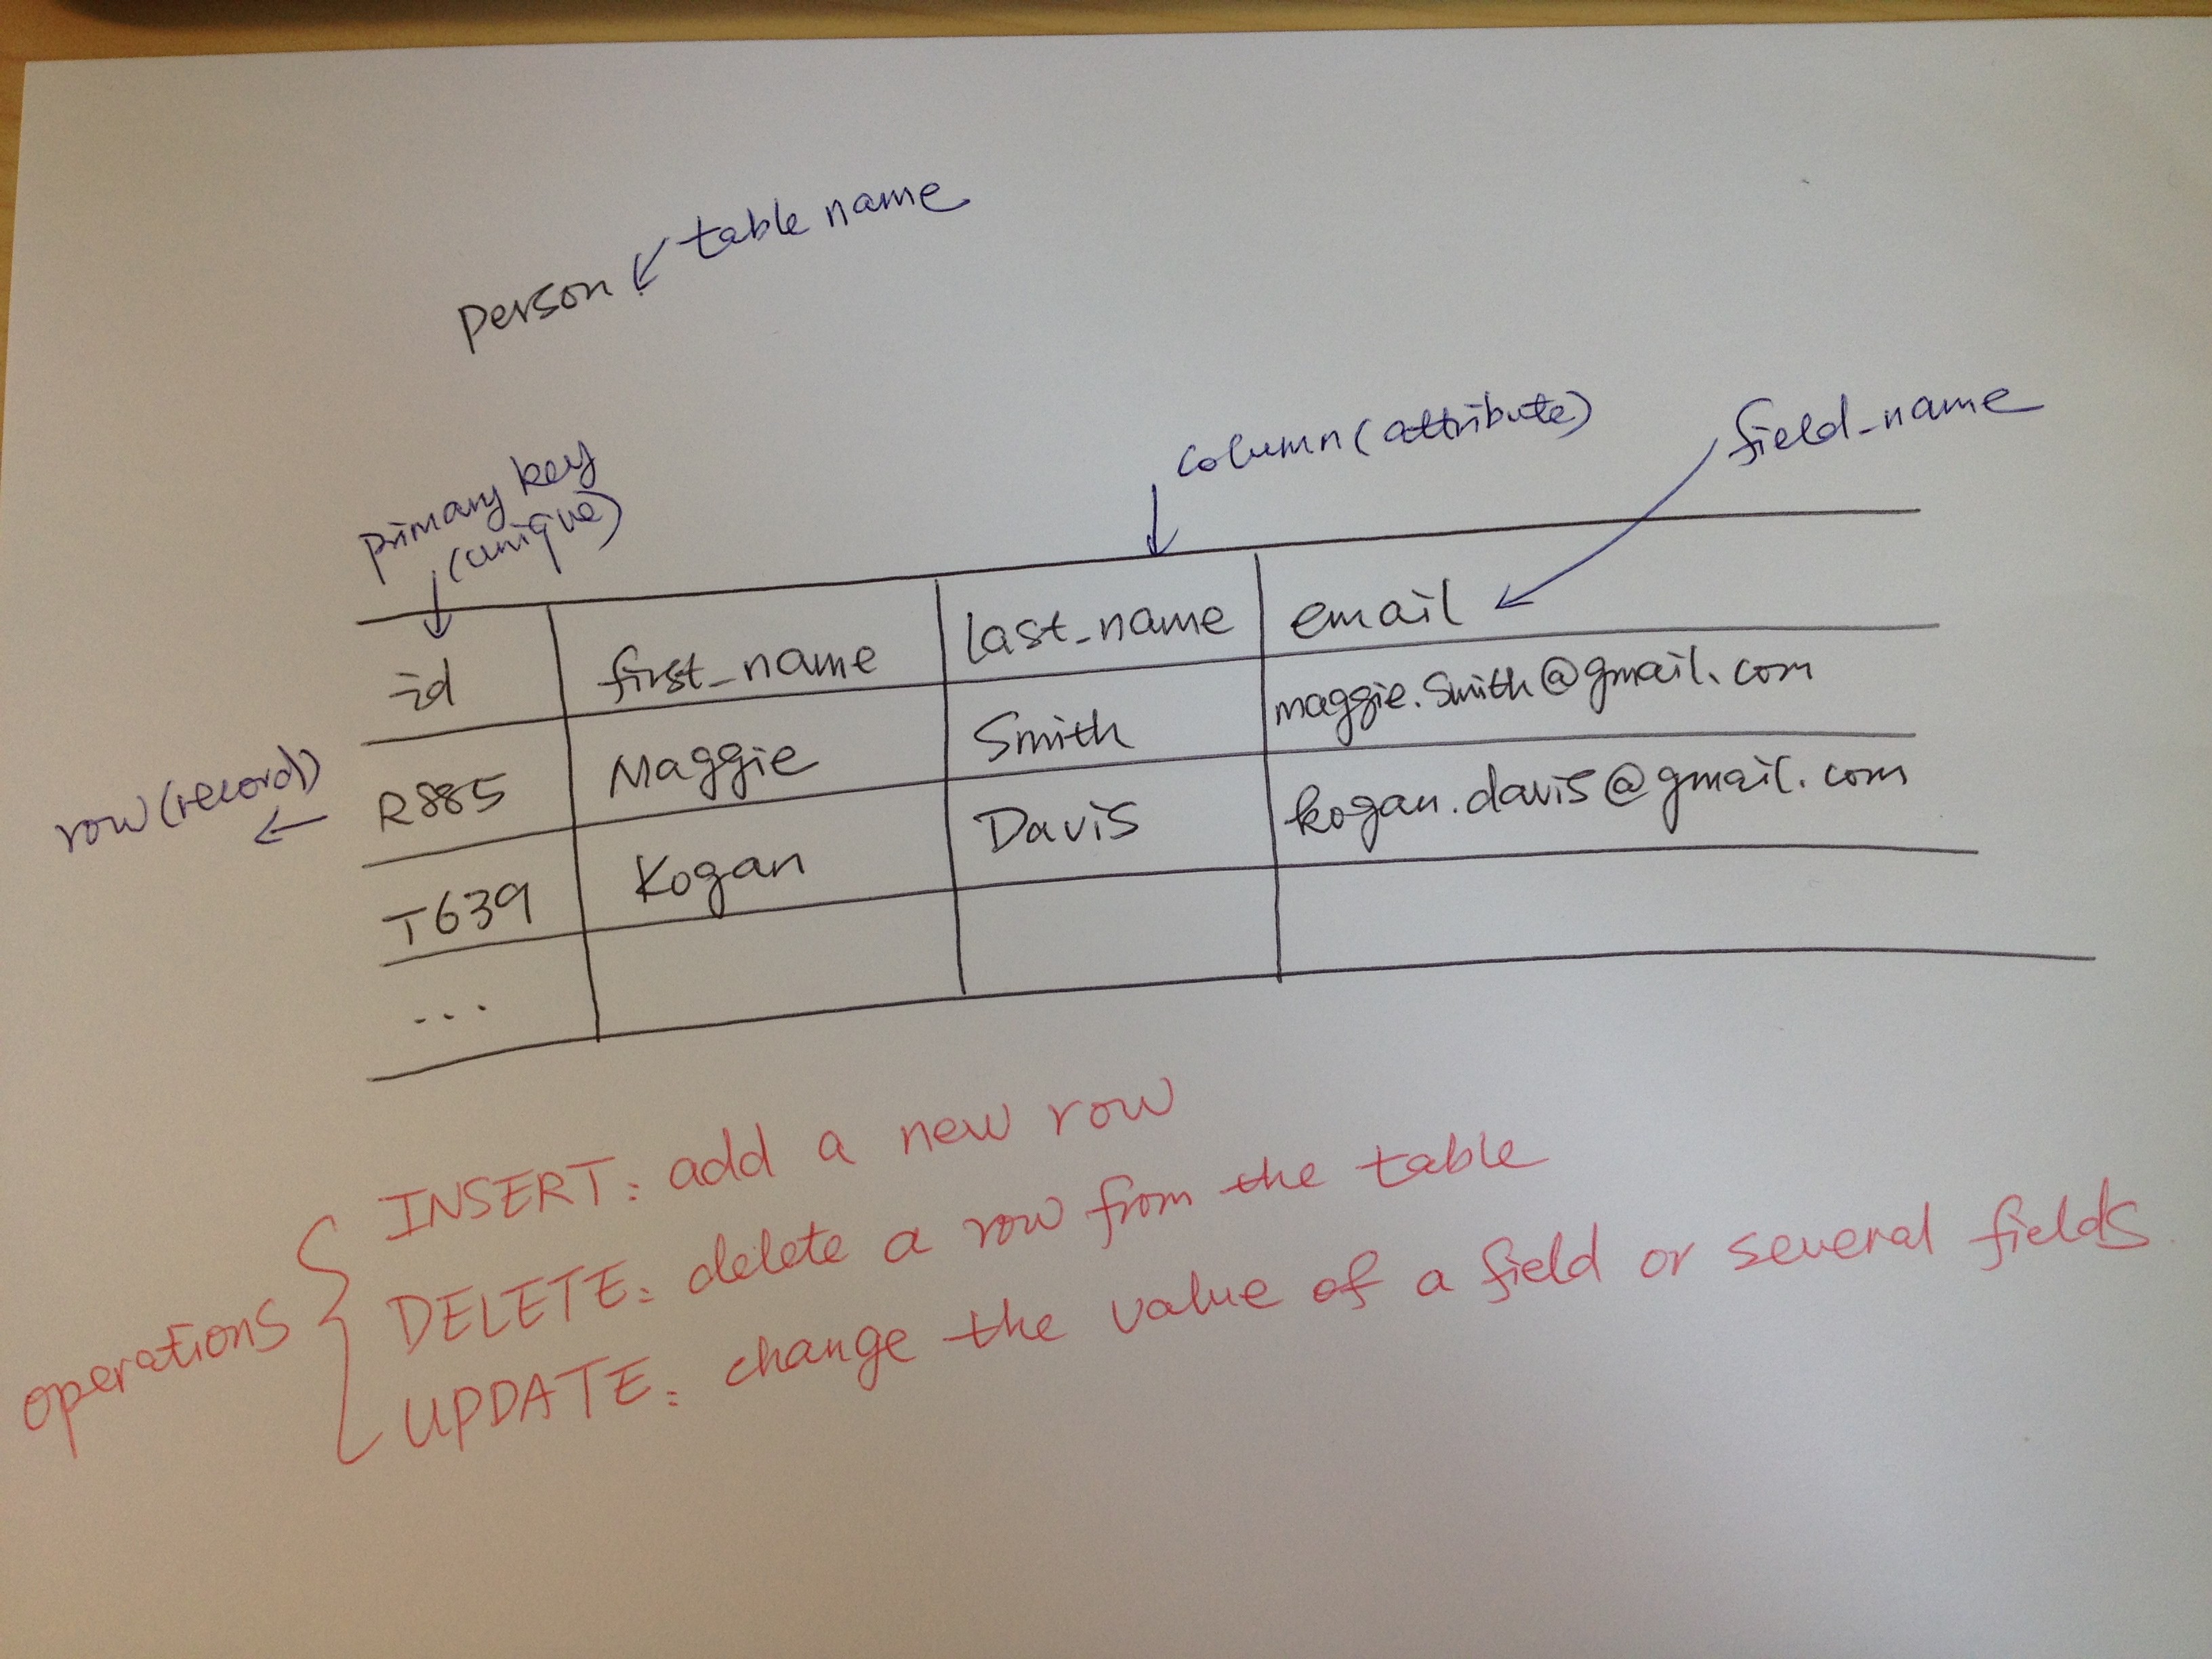 person ↙ table name
column(attribute)
field_name
primary key
(unique)
id first_name last_name email
row(record)
R885 Maggie Smith maggie.smith@gmail.com
T639 Kogan Davis kogan.davis@gmail.com
...
operations
INSERT: add a new row
DELETE: delete a row from the table
UPDATE: change the value of a field or several fields